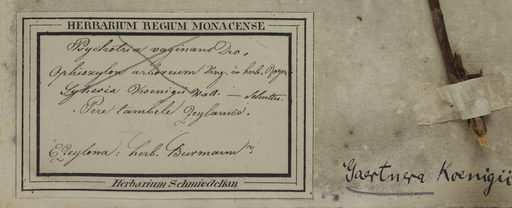 HERBARIUM REGIUM MONACENSE
Psychotria vaginans Dec.
Ophioxylon arboreum in herb.
Sykesia Koenigii Wall. — Schultes.
Pere tambele Zeylanice.
E Zeylona: herb. Burmann
Herbarium Schmiedelian
Gaertnera Koenigii